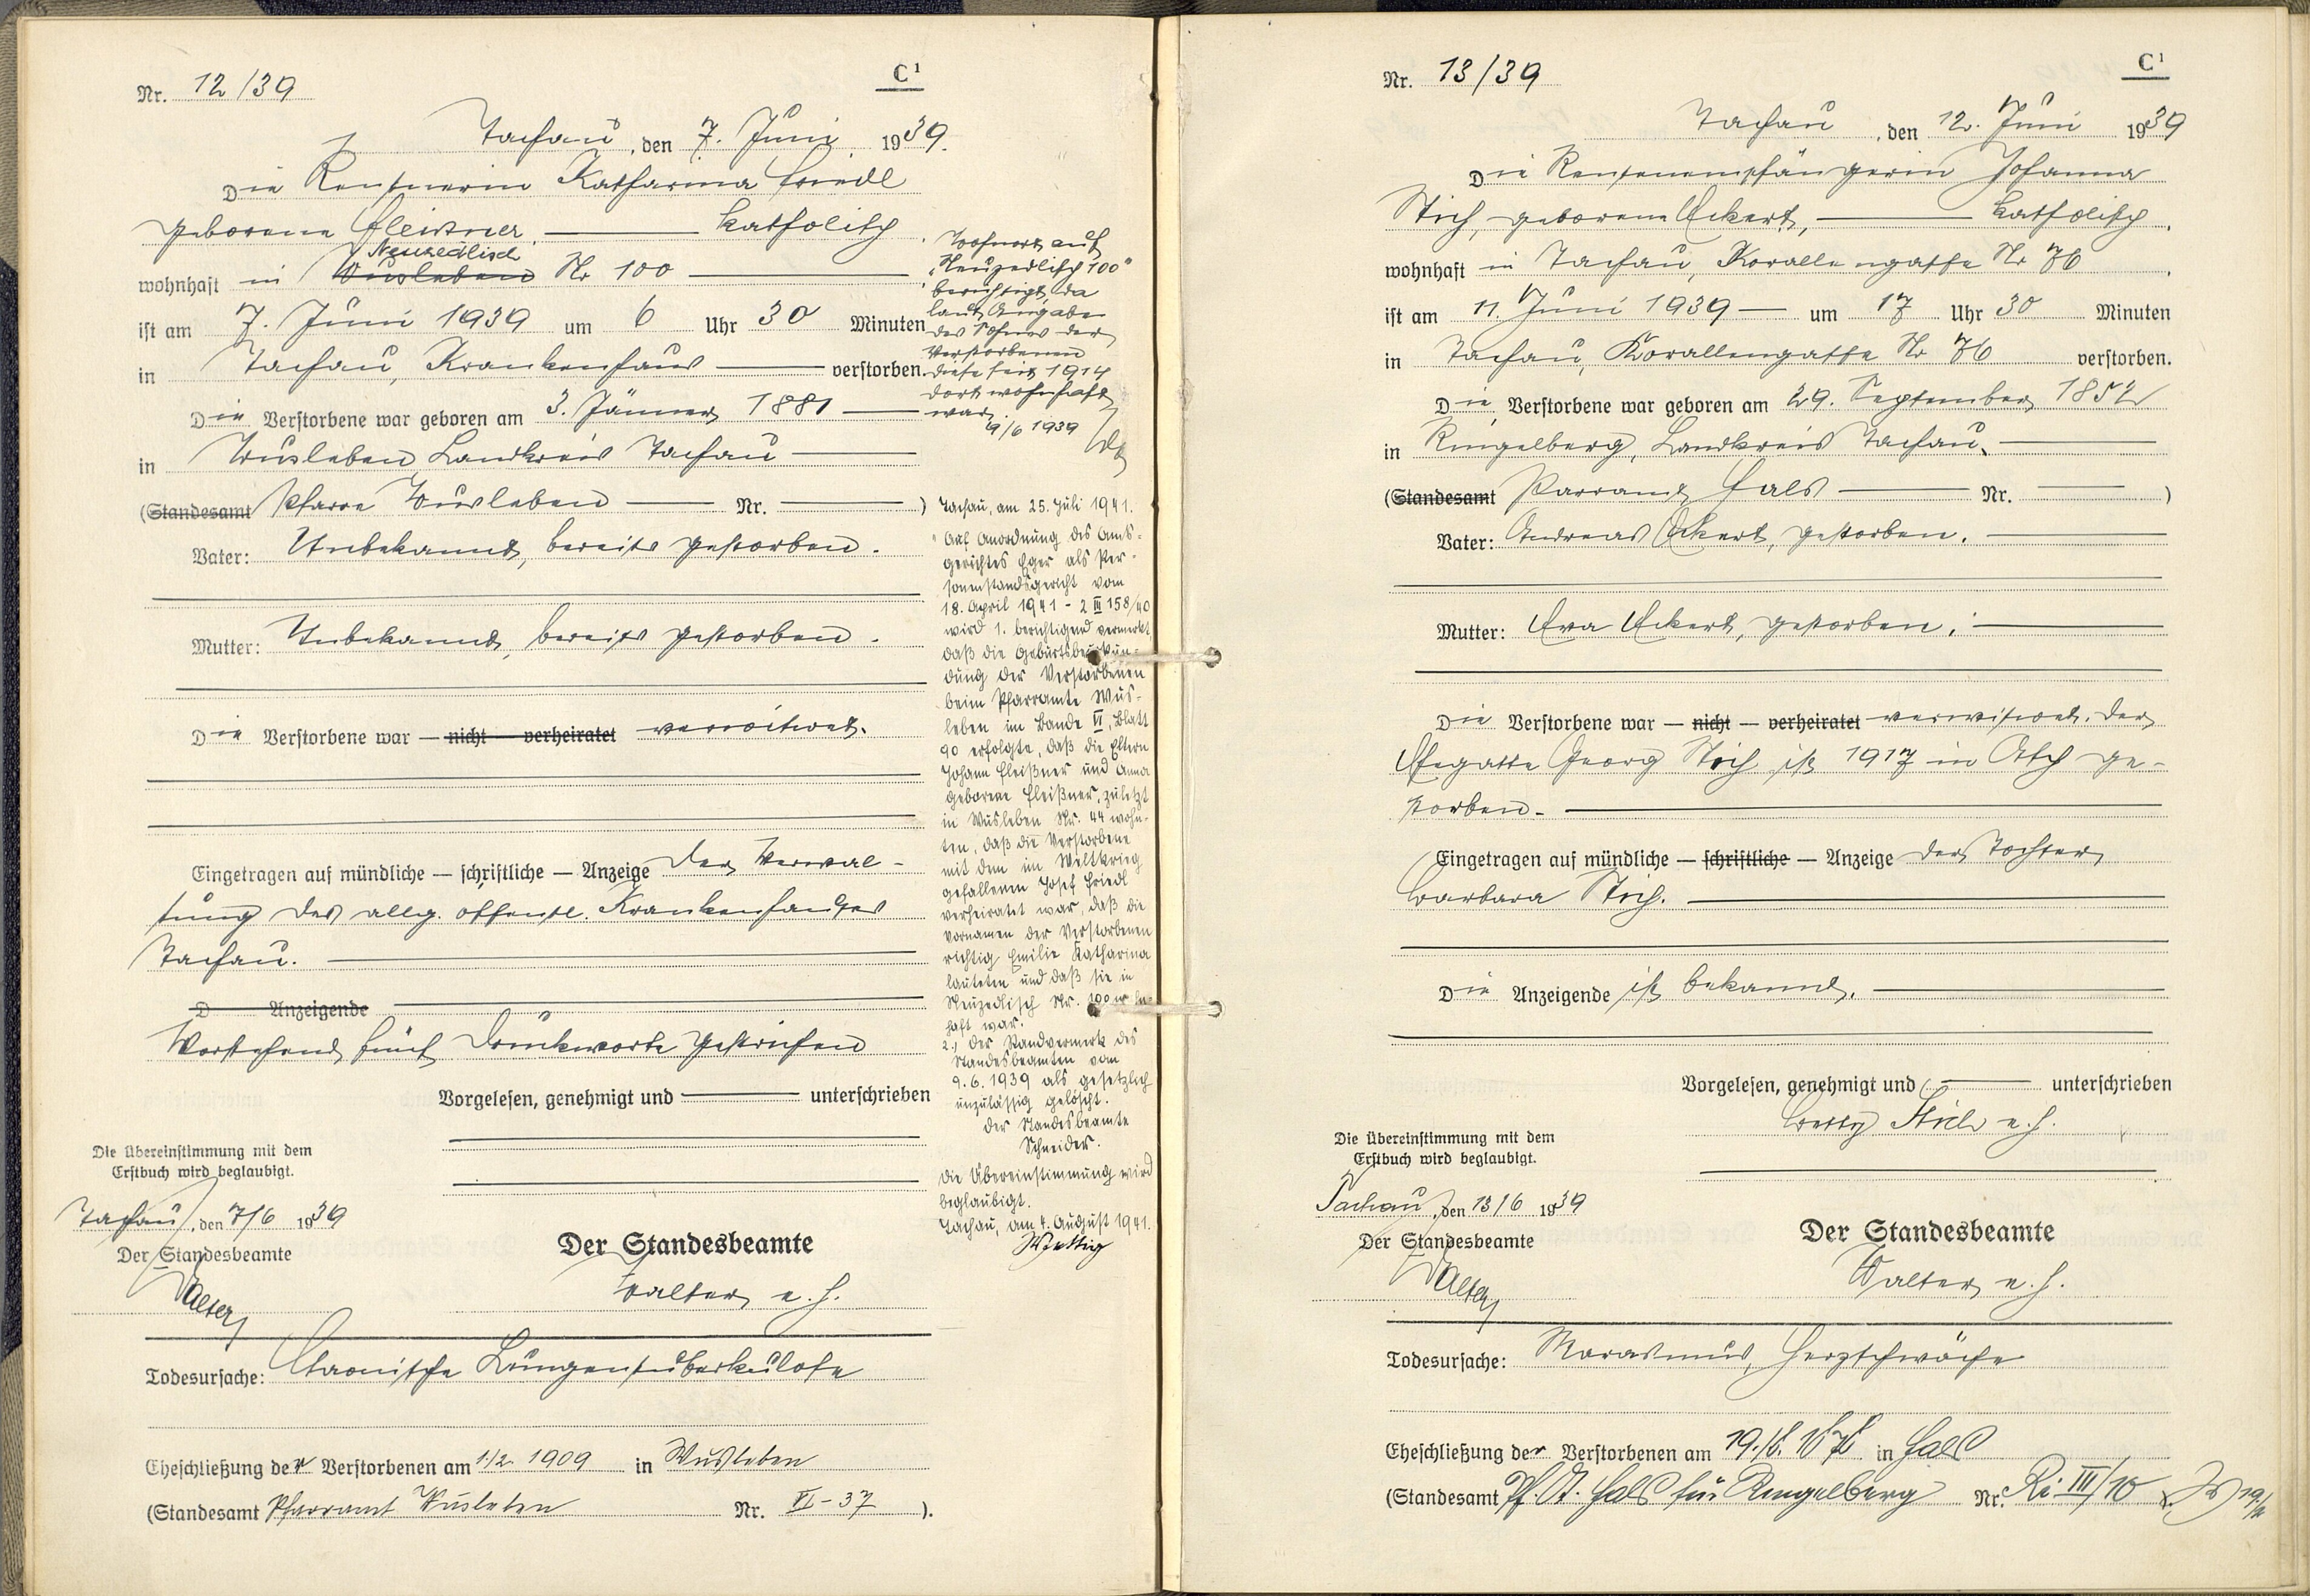 Nr. 12/39
C¹
Tachau, den 7. Juni 1939.
Die Rentnerin Katharina Friedl
geborene Fleißner, katholisch,
Neuzedlisch
wohnhaft in Wusleben Nr 100
ist am 7. Juni 1939 um 6 Uhr 30 Minuten
in Tachau, Krankenhaus verstorben.
Die Verstorbene war geboren am 3. Jänner 1881
in Wusleben, Landkreis Tachau
(Standesamt Pfarre Wusleben Nr. )
Vater: Unbekannt, bereits gestorben.
Mutter: Unbekannt, bereits gestorben.
Die Verstorbene war — nicht — verheiratet verwitwet.
Eingetragen auf mündliche — schriftliche — Anzeige der Verwal-
tung des allg. öffentl. Krankenhauses
Tachau.
D Anzeigende
Vorstehend fünf Druckworte gestrichen
Vorgelesen, genehmigt und unterschrieben
Die Übereinstimmung mit dem
Erstbuch wird beglaubigt.
Tachau, den 7/6 1939
Der Standesbeamte
Walter
Der Standesbeamte
Walter e. h.
Todesursache: Chronische Lungentuberkulose
Eheschließung der Verstorbenen am 1/2. 1909 in Wusleben
(Standesamt Pfarramt Wusleben Nr. VI-37 ).
Wohnort auf
"Neuzedlisch 100"
berichtigt, da
laut Angabe
des Sohnes der
Verstorbenen
diese seit 1914
dort wohnhaft
war.
9/6 1939
Tachau, am 25. Juli 1941.
Auf Anordnung des Amts-
gerichtes Eger als Per-
sonenstandsgericht vom
18. April 1941 - 2 III 158/40
wird 1. berichtigend vermerkt,
daß die Geburtsbeurkun-
dung der Verstorbenen
beim Pfarramte Wus-
leben im Bande VI, Blatt
90 erfolgte, daß die Eltern
Johann Fleißner und Anna
geborene Fleißner, zuletzt
in Wusleben Nr. 44 wohn-
ten, daß die Verstorbene
mit dem im Weltkrieg
gefallenen Josef Friedl
verheiratet war, daß die
Vornamen der Verstorbenen
richtig Emilie Katharina
lauteten und daß sie in
Neuzedlisch Nr. 100 wohn-
haft war.
2.) Der Randvermerk des
Standesbeamten vom
9. 6. 1939 als gesetzlich
unzulässig gelöscht.
Der Standesbeamte
Schneider.
Die Übereinstimmung wird
beglaubigt.
Tachau, am 4. August 1941.
Nr. 13/39
C¹
Tachau, den 12. Juni 1939
Die Rentenempfängerin Johanna
Stich, geborene Eckert, katholisch,
wohnhaft in Tachau, Korallengasse Nr 76,
ist am 11. Juni 1939 um 17 Uhr 30 Minuten
in Tachau, Korallengasse Nr 76 verstorben.
Die Verstorbene war geboren am 29. September 1852
in Ringelberg, Landkreis Tachau,
(Standesamt Parramt Hals Nr. )
Vater: Andreas Eckert, gestorben.
Mutter: Eva Eckert, gestorben.
Die Verstorbene war — nicht — verheiratet verwitwet. Der
Ehegatte Georg Stich ist 1917 in Asch ge-
storben.
Eingetragen auf mündliche — schriftliche — Anzeige der Tochter
Barbara Stich.
Die Anzeigende ist bekannt.
Vorgelesen, genehmigt und unterschrieben
Betty Stich e. h.
Die Übereinstimmung mit dem
Erstbuch wird beglaubigt.
Tachau, den 13/6 1939
Der Standesbeamte
Walter
Der Standesbeamte
Walter e. h.
Todesursache: Marasmus, Herzschwäche
Eheschließung der Verstorbenen am 19./8. 1878 in Hals
(Standesamt Pf. A. Hals für Ringelberg Nr. Ri. III/10 ).